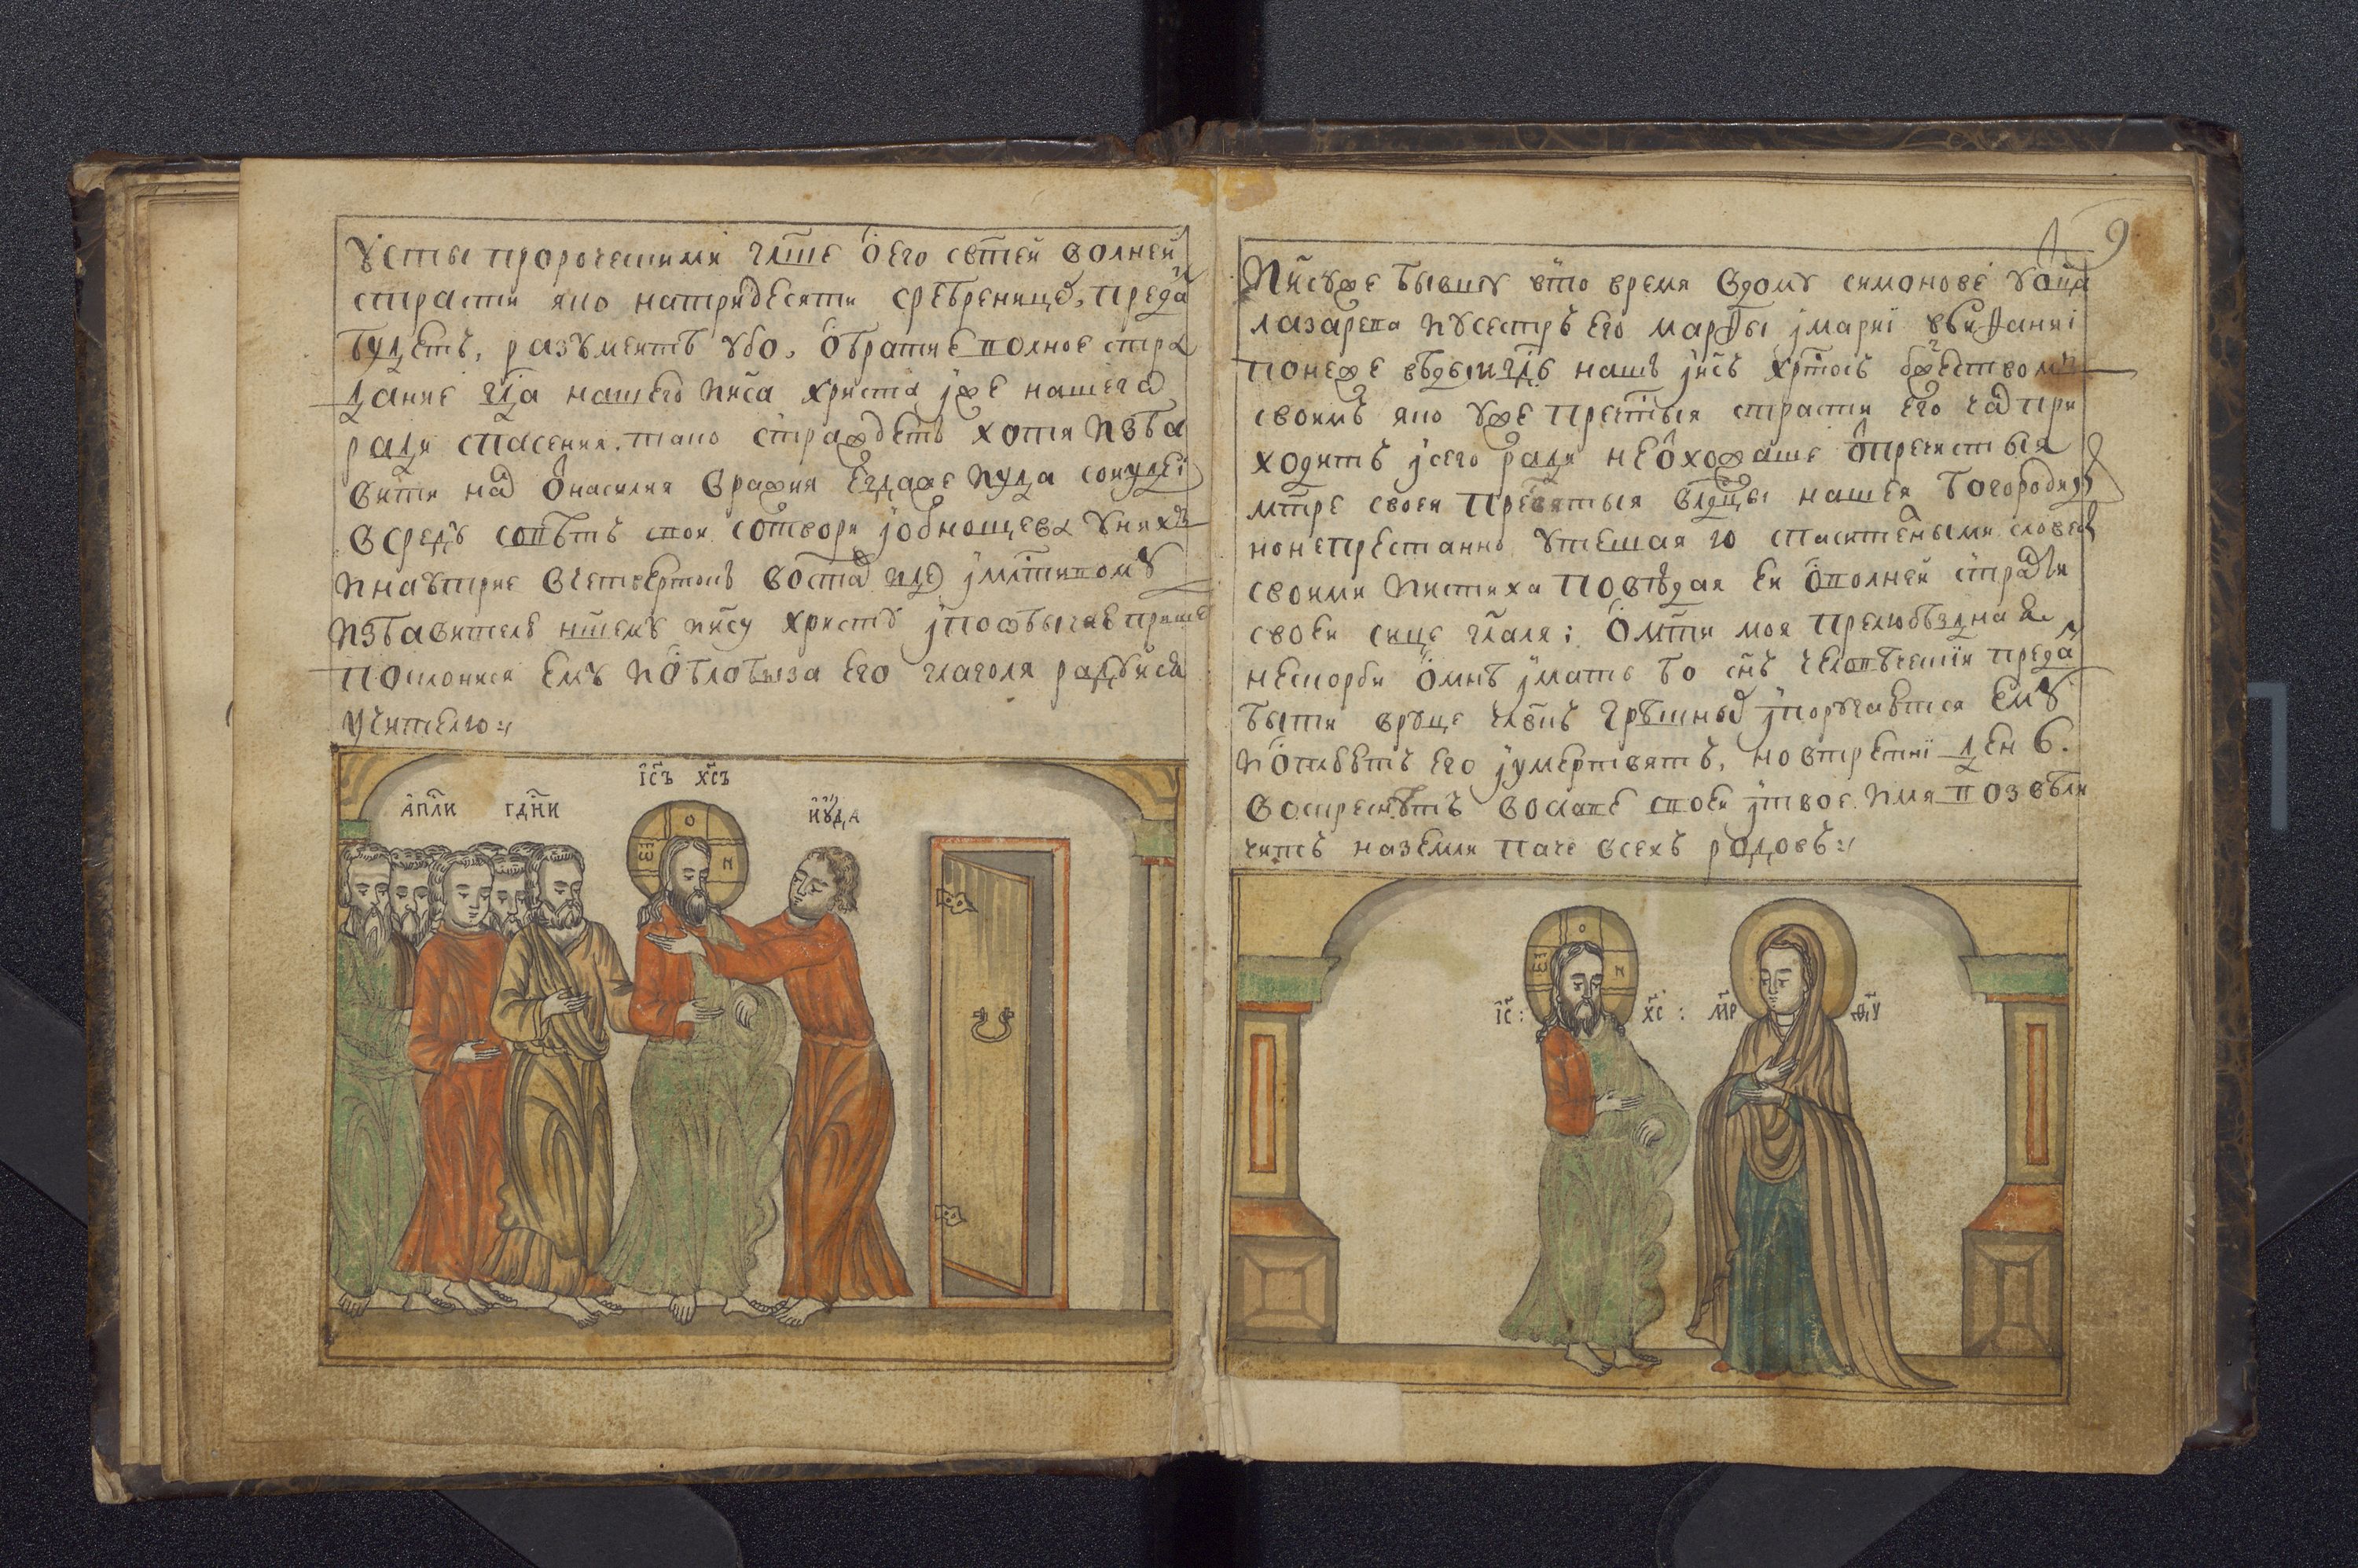 усты пророческими гл҃ше о его свт҃ей волней
страсти яко натридесяти сребреницех преда
будетъ, разумеитъ убо, о братие полное стра
дание гд҃а нашего ииса христа їже нашего
ради спасения. тако страждетъ хотя изба
вити над о насилия вражия егдаже иуда сииудеі
всреду советъ свои сотвори їобнощева унихъ
инаутрие вчетвертокъ востав їмлт҃ивому
избавителю нш҃ему иису христу їпообычаю прише
поклонися ему иоблобыза его глаголя радуйся
учителю
АПЛИ ГДНИ
ІС҃Ъ ХС҃Ъ
ИУДА
9
Иисуже бывшу вто время вдому симонове уоца
лазарева иусестръ его марѳы їмарии ввиѳании
понеже ведыи гд҃ь нашъ їис҃ъ хрт҃осъ бжествомъ
своимъ яко уже преч҃тыя страсти его час при
ходитъ їсего ради неѿхождаше ѿпречистыя
мт҃ре своея пресвятыя влдц҃ы нашея богородицы
нонепрестанно утешая ю спасителными словесы
своими иистиха поведая еи ополней страсти
своеи сице гл҃аля: о мт҃и моя прелюбезная
нескорби омне їмать бо сн҃ъ человеческия преда
быти вруце чл҃вкъ грешных їпоругаются ему
иоплюютъ его їумертвятъ, новтретиї день.
воскреснутъ вославе своеи їтвое имя возвели
читъ наземли паче всехъ родовъ
О
ѠОН
ІС҃: ХС҃: МР҃ ѲУ҃